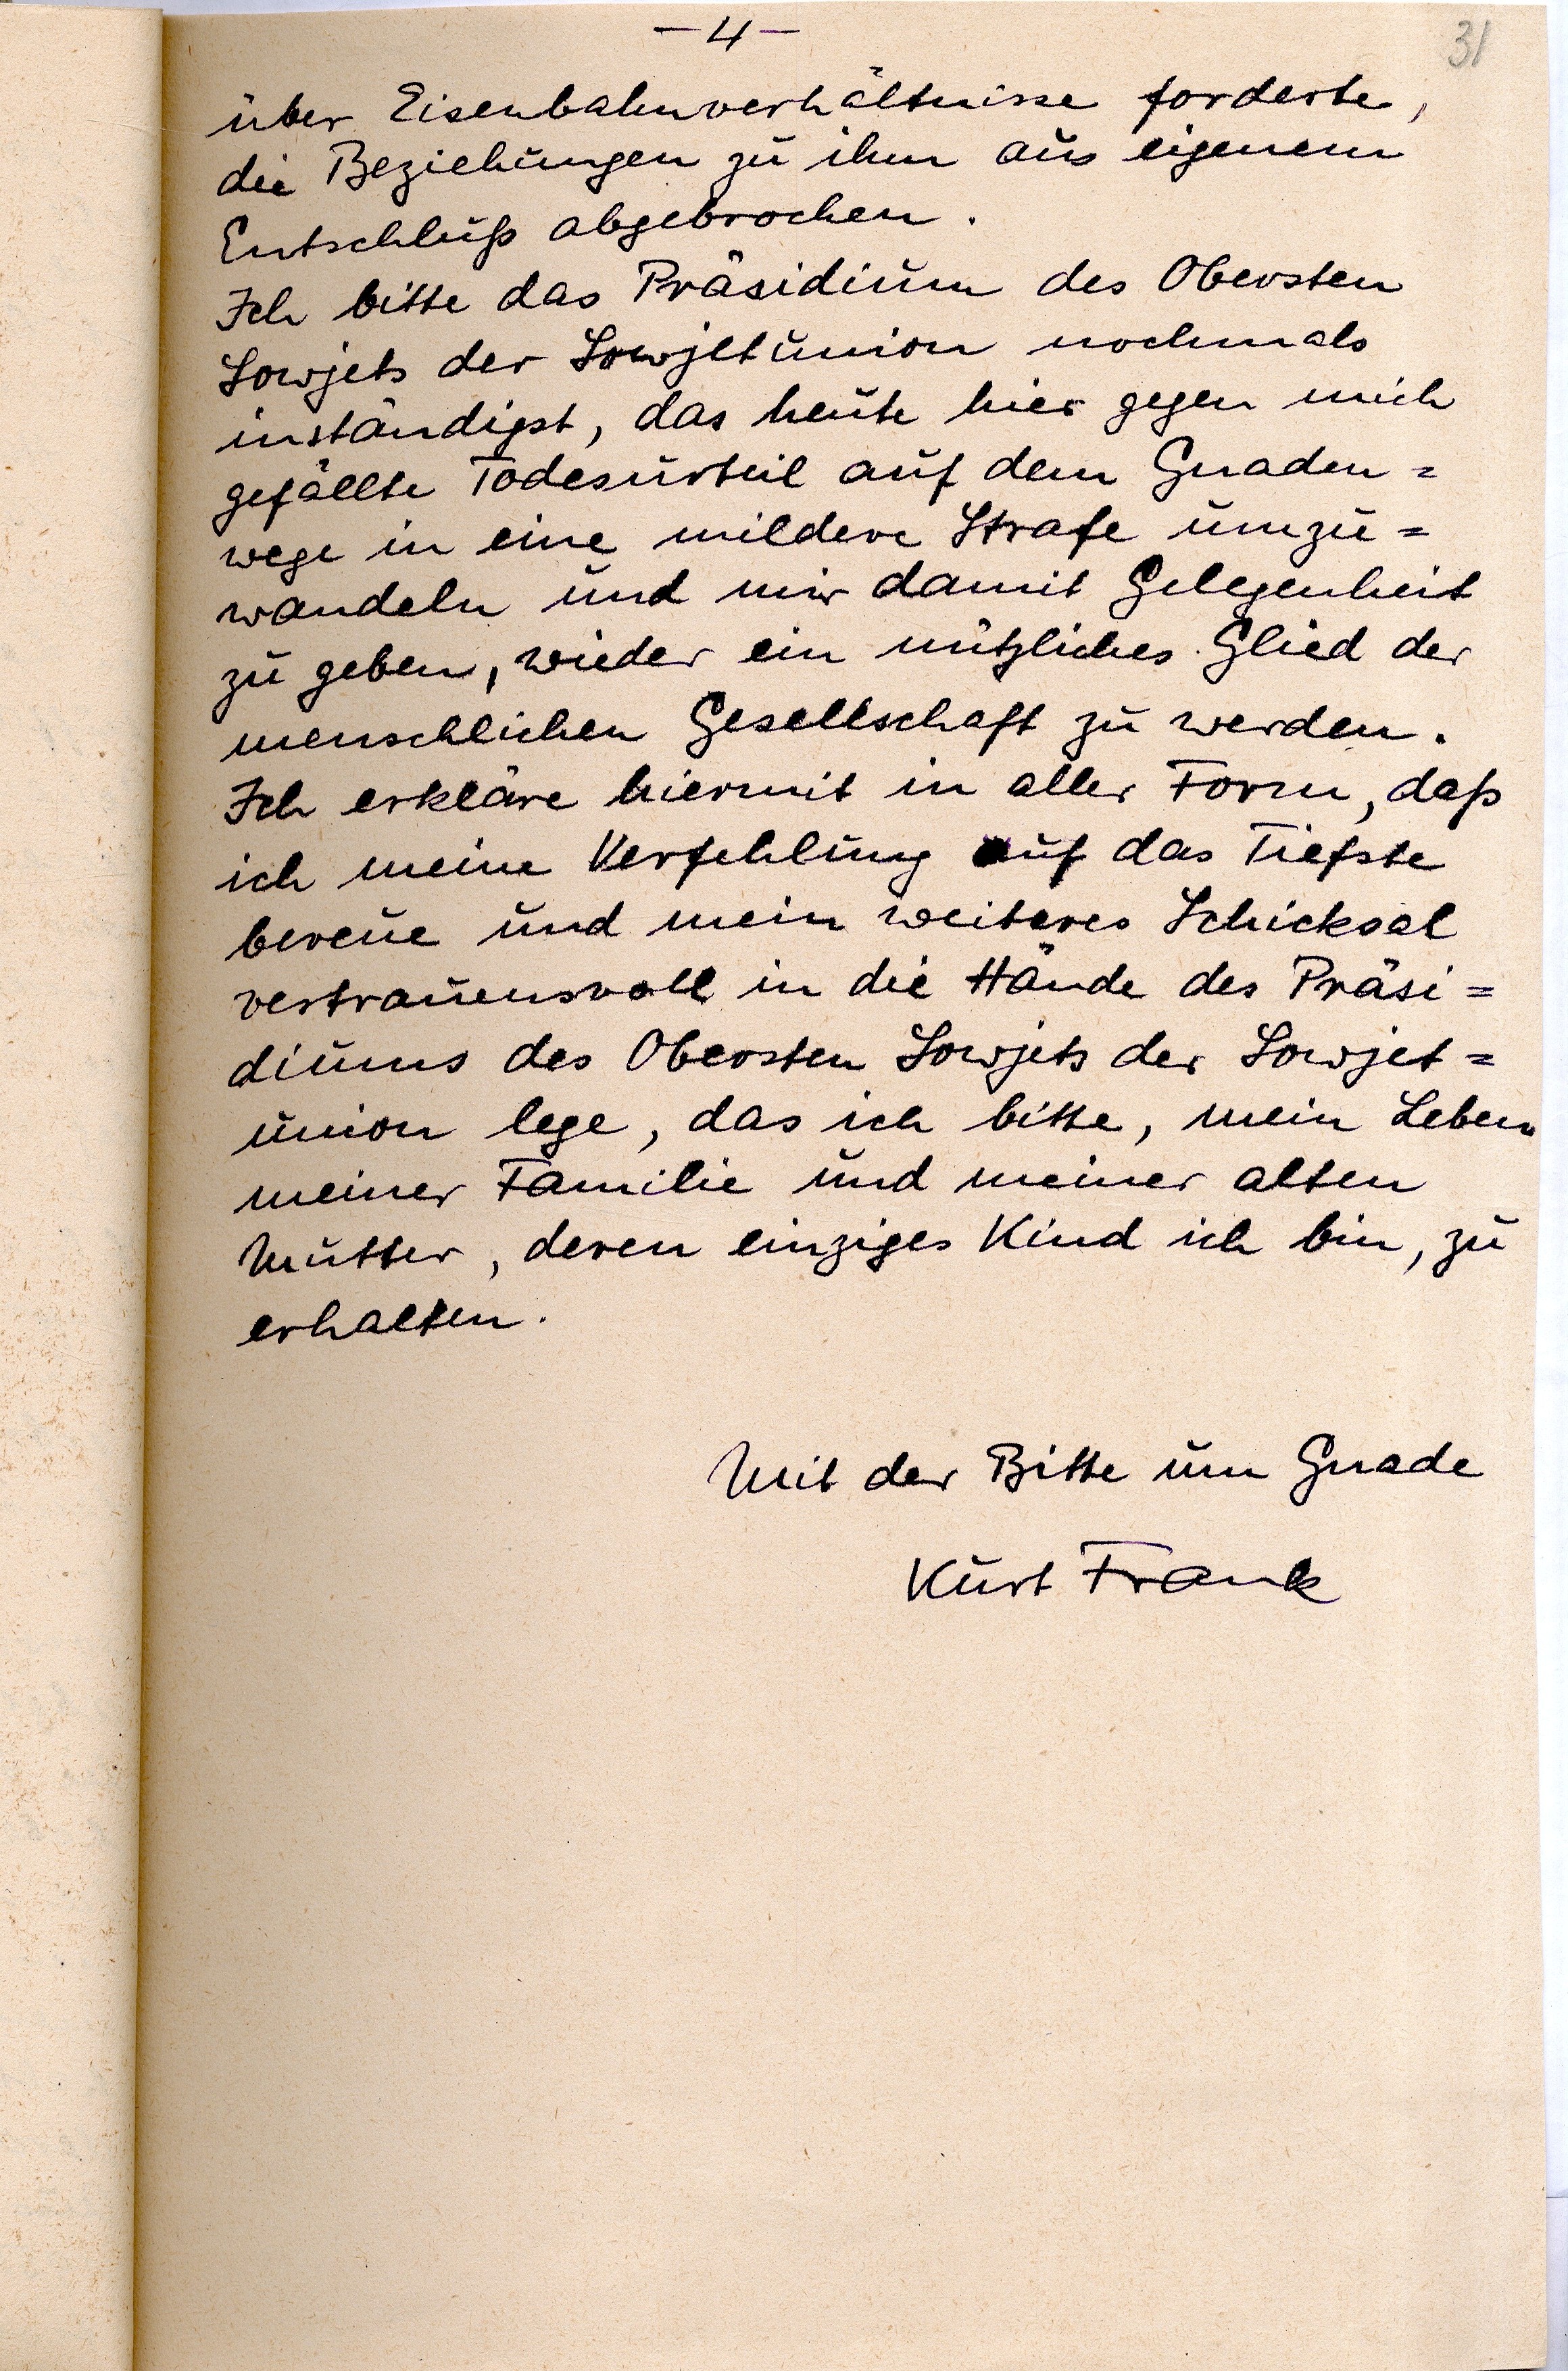 — 4 —
31
über Eisenbahnverhältnisse forderte,
die Beziehungen zu ihm aus eigenem
Entschluß abgebrochen.
Ich bitte das Präsidium des Obersten
Sowjets der Sowjetunion nochmals
inständigst, das heute hier gegen mich
gefällte Todesurteil auf dem Gnaden=
wege in eine mildere Strafe umzu=
wandeln und mir damit Gelegenheit
zu geben, wieder ein nützliches Glied der
menschlichen Gesellschaft zu werden.
Ich erkläre hiermit in aller Form, daß
ich meine Verfehlung auf das Tiefste
bereue und mein weiteres Schicksal
vertrauensvoll in die Hände des Präsi=
diums des Obersten Sowjets der Sowjet=
union lege, das ich bitte, mein Leben
meiner Familie und meiner alten
Mutter, deren einziges Kind ich bin, zu
erhalten.
Mit der Bitte um Gnade
Kurt Frank